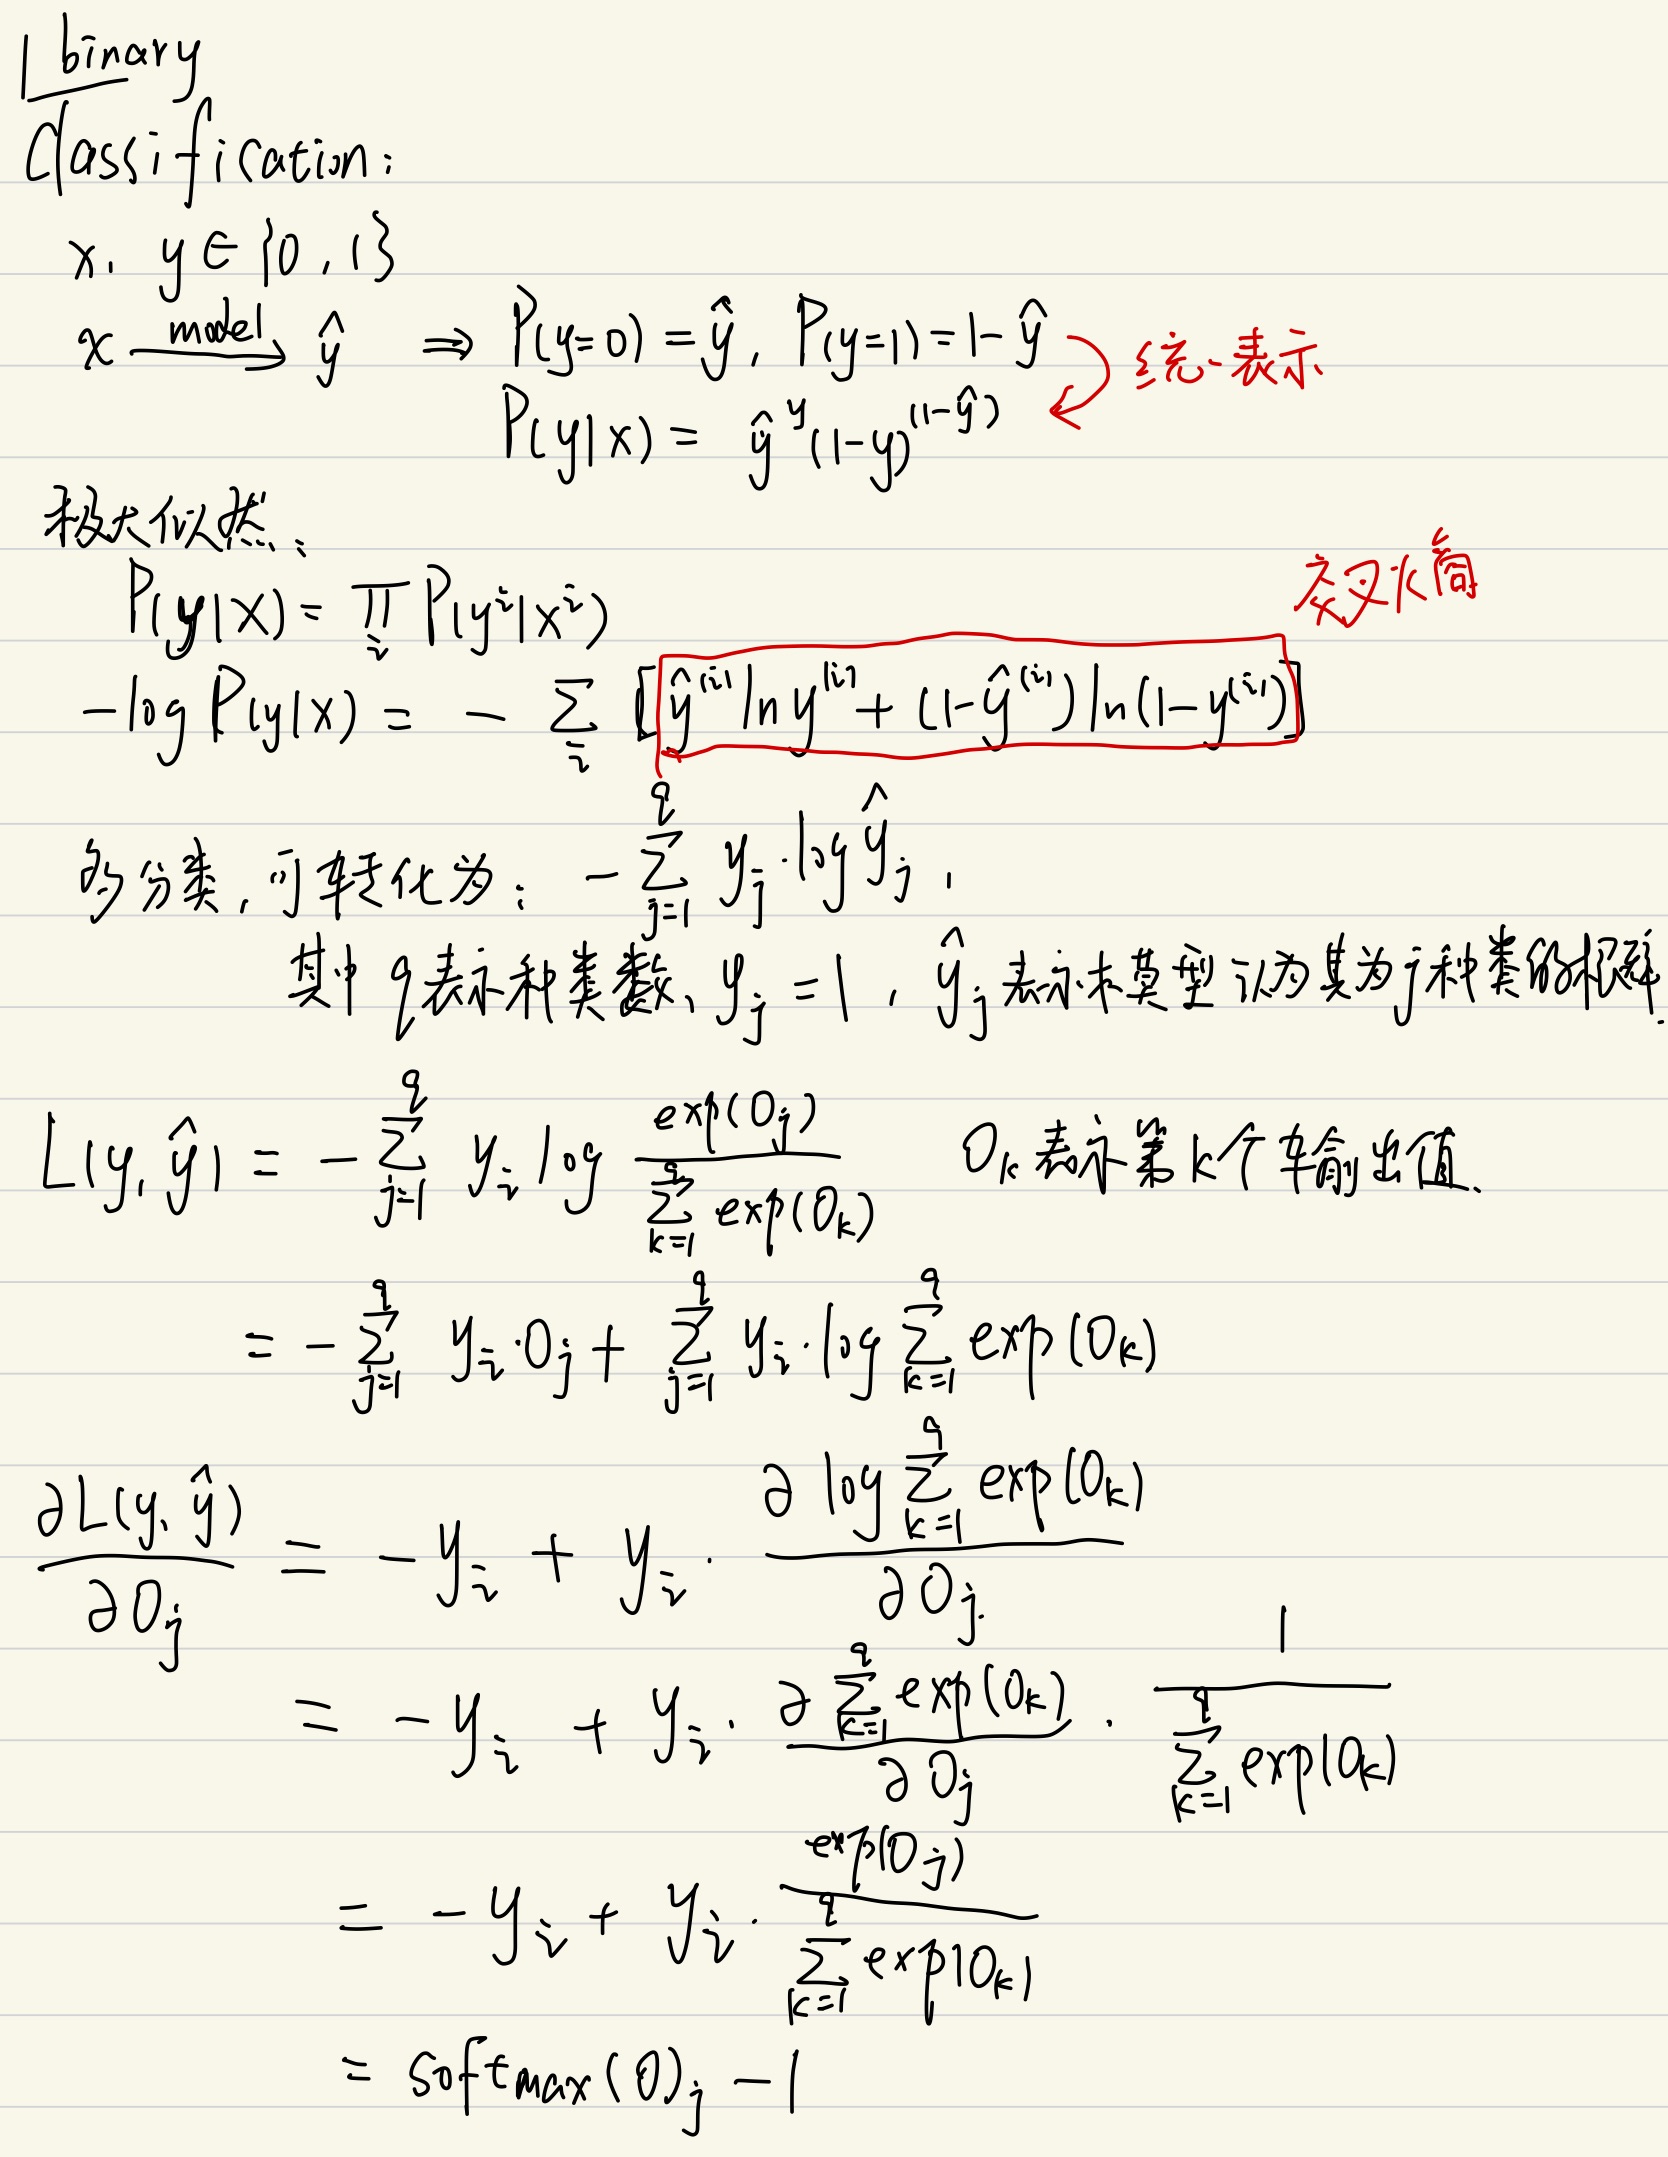 binary
Classification:
x, y ∈ {0, 1}
x —model→ ŷ ⇒ P(y=0) = ŷ, P(y=1) = 1-ŷ
统一表示
P(y|x) = ŷ^y (1-y)^(1-ŷ)
极大似然:
P(y|X) = ∏_i P(y^i|x^i)
交叉火简
-log P(y|X) = - ∑_i [ŷ^(i) ln y^(i) + (1-ŷ^(i)) ln(1-y^(i))]
多分类,可转化为: -∑_{j=1}^{q} y_j·log ŷ_j,
其中q表示种类数, y_j = 1, ŷ_j 表示模型认为其为j种类的概率.
L(y, ŷ) = -∑_{j=1}^{q} y_i log exp(O_j) / ∑_{k=1}^{q} exp(O_k) O_k 表示第k个车俞出值.
= -∑_{j=1}^{q} y_i·O_j + ∑_{j=1}^{q} y_i·log ∑_{k=1}^{q} exp(O_k)
∂L(y, ŷ) / ∂O_j = -y_i + y_i · ∂ log ∑_{k=1}^{q} exp(O_k) / ∂O_j
= -y_i + y_i · ∂ ∑_{k=1}^{q} exp(O_k) / ∂O_j · 1 / ∑_{k=1}^{q} exp(O_k)
= -y_i + y_i · exp(O_j) / ∑_{k=1}^{q} exp(O_k)
= softmax(O)_j - 1